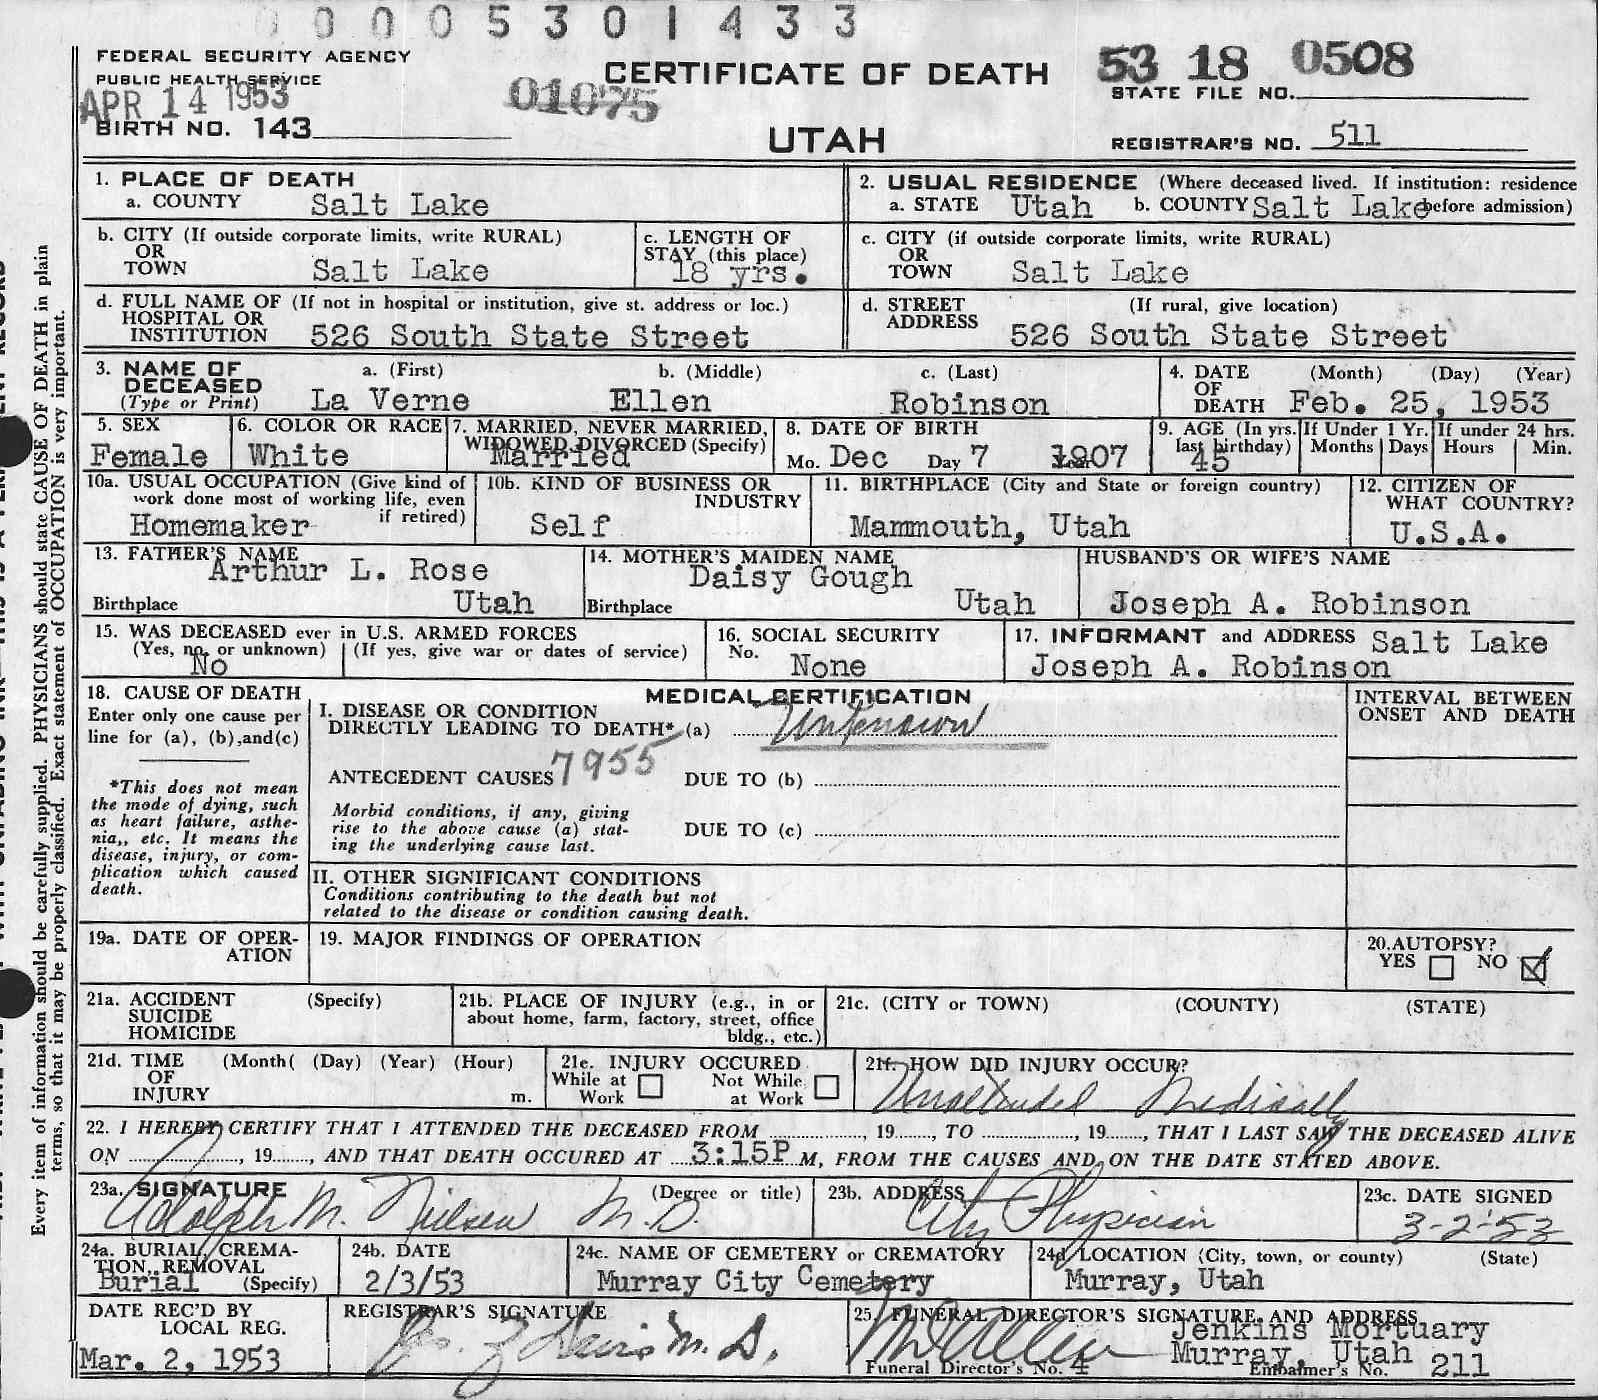 0 0 0 0 5 3 0 1 4 3 3
FEDERAL SECURITY AGENCY
PUBLIC HEALTH SERVICE
APR 14 1953
BIRTH NO. 143
01075
CERTIFICATE OF DEATH
UTAH
53 18 0508
STATE FILE NO.
REGISTRAR'S NO. 511
1. PLACE OF DEATH
a. COUNTY Salt Lake
2. USUAL RESIDENCE (Where deceased lived. If institution: residence
a. STATE Utah b. COUNTY Salt Lake before admission)
b. CITY (If outside corporate limits, write RURAL)
OR
TOWN Salt Lake
c. LENGTH OF
STAY (this place)
18 yrs.
c. CITY (if outside corporate limits, write RURAL)
OR
TOWN Salt Lake
d. FULL NAME OF (If not in hospital or institution, give st. address or loc.)
HOSPITAL OR
INSTITUTION 526 South State Street
d. STREET (If rural, give location)
ADDRESS 526 South State Street
3. NAME OF a. (First) b. (Middle) c. (Last)
DECEASED
(Type or Print) La Verne Ellen Robinson
4. DATE (Month) (Day) (Year)
OF
DEATH Feb. 25, 1953
5. SEX
Female
6. COLOR OR RACE
White
7. MARRIED, NEVER MARRIED,
WIDOWED, DIVORCED (Specify)
Married
8. DATE OF BIRTH
Mo. Dec Day 7 Year 1907
9. AGE (In yrs.
last birthday)
45
If Under 1 Yr.
Months Days
If under 24 hrs.
Hours Min.
10a. USUAL OCCUPATION (Give kind of
work done most of working life, even
if retired)
Homemaker
10b. KIND OF BUSINESS OR
INDUSTRY
Self
11. BIRTHPLACE (City and State or foreign country)
Mammouth, Utah
12. CITIZEN OF
WHAT COUNTRY?
U.S.A.
13. FATHER'S NAME
Arthur L. Rose
Birthplace Utah
14. MOTHER'S MAIDEN NAME
Daisy Gough
Birthplace Utah
HUSBAND'S OR WIFE'S NAME
Joseph A. Robinson
15. WAS DECEASED ever in U.S. ARMED FORCES
(Yes, no, or unknown) (If yes, give war or dates of service)
No
16. SOCIAL SECURITY
No. None
17. INFORMANT and ADDRESS Salt Lake
Joseph A. Robinson
18. CAUSE OF DEATH
Enter only one cause per
line for (a), (b),and(c)
*This does not mean
the mode of dying, such
as heart failure, asthe-
nia,, etc. It means the
disease, injury, or com-
plication which caused
death.
MEDICAL CERTIFICATION
I. DISEASE OR CONDITION
DIRECTLY LEADING TO DEATH* (a) Unknown
ANTECEDENT CAUSES 7955 DUE TO (b)
Morbid conditions, if any, giving
rise to the above cause (a) stat-
ing the underlying cause last.
DUE TO (c)
II. OTHER SIGNIFICANT CONDITIONS
Conditions contributing to the death but not
related to the disease or condition causing death.
INTERVAL BETWEEN
ONSET AND DEATH
19a. DATE OF OPER-
ATION
19. MAJOR FINDINGS OF OPERATION
20.AUTOPSY?
YES NO
21a. ACCIDENT (Specify)
SUICIDE
HOMICIDE
21b. PLACE OF INJURY (e.g., in or
about home, farm, factory, street, office
bldg., etc.)
21c. (CITY or TOWN) (COUNTY) (STATE)
21d. TIME (Month( (Day) (Year) (Hour)
OF
INJURY m.
21e. INJURY OCCURED
While at Work Not While at Work
21f. HOW DID INJURY OCCUR?
Unattended Medically
22. I HEREBY CERTIFY THAT I ATTENDED THE DECEASED FROM , 19 , TO , 19 , THAT I LAST SAW THE DECEASED ALIVE
ON , 19 , AND THAT DEATH OCCURED AT 3:15P M, FROM THE CAUSES AND ON THE DATE STATED ABOVE.
23a. SIGNATURE (Degree or title)
Adolph M. Nielsen M.D.
23b. ADDRESS
City Physician
23c. DATE SIGNED
3-2-53
24a. BURIAL, CREMA-
TION, REMOVAL
Burial (Specify)
24b. DATE
2/3/53
24c. NAME OF CEMETERY or CREMATORY
Murray City Cemetery
24d. LOCATION (City, town, or county) (State)
Murray, Utah
DATE REC'D BY
LOCAL REG.
Mar. 2, 1953
REGISTRAR'S SIGNATURE
M.D.
25. FUNERAL DIRECTOR'S SIGNATURE, AND ADDRESS
Jenkins Mortuary
Murray, Utah
Funeral Director's No. 4 Embalmer's No. 211
Every item of information should be carefully supplied. PHYSICIANS should state CAUSE OF DEATH in plain
terms, so that it may be properly classified. Exact statement of OCCUPATION is very important.